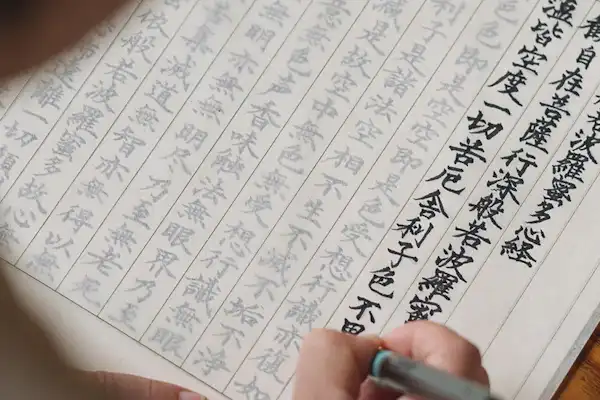 若波羅蜜多心経
観自在菩薩行深般若波羅蜜
蘊皆空度一切苦厄舎利子色不異
色色即是空空即是色受想行識亦復如
利子是諸法空相不生不滅不垢不浄
減是故空中無色無受想行識無眼
意無色声香味触法無眼界乃至
無明亦無無明尽乃至無老死
苦集滅道無智亦無得以無
依般若波羅蜜多故心無
遠離一切顛